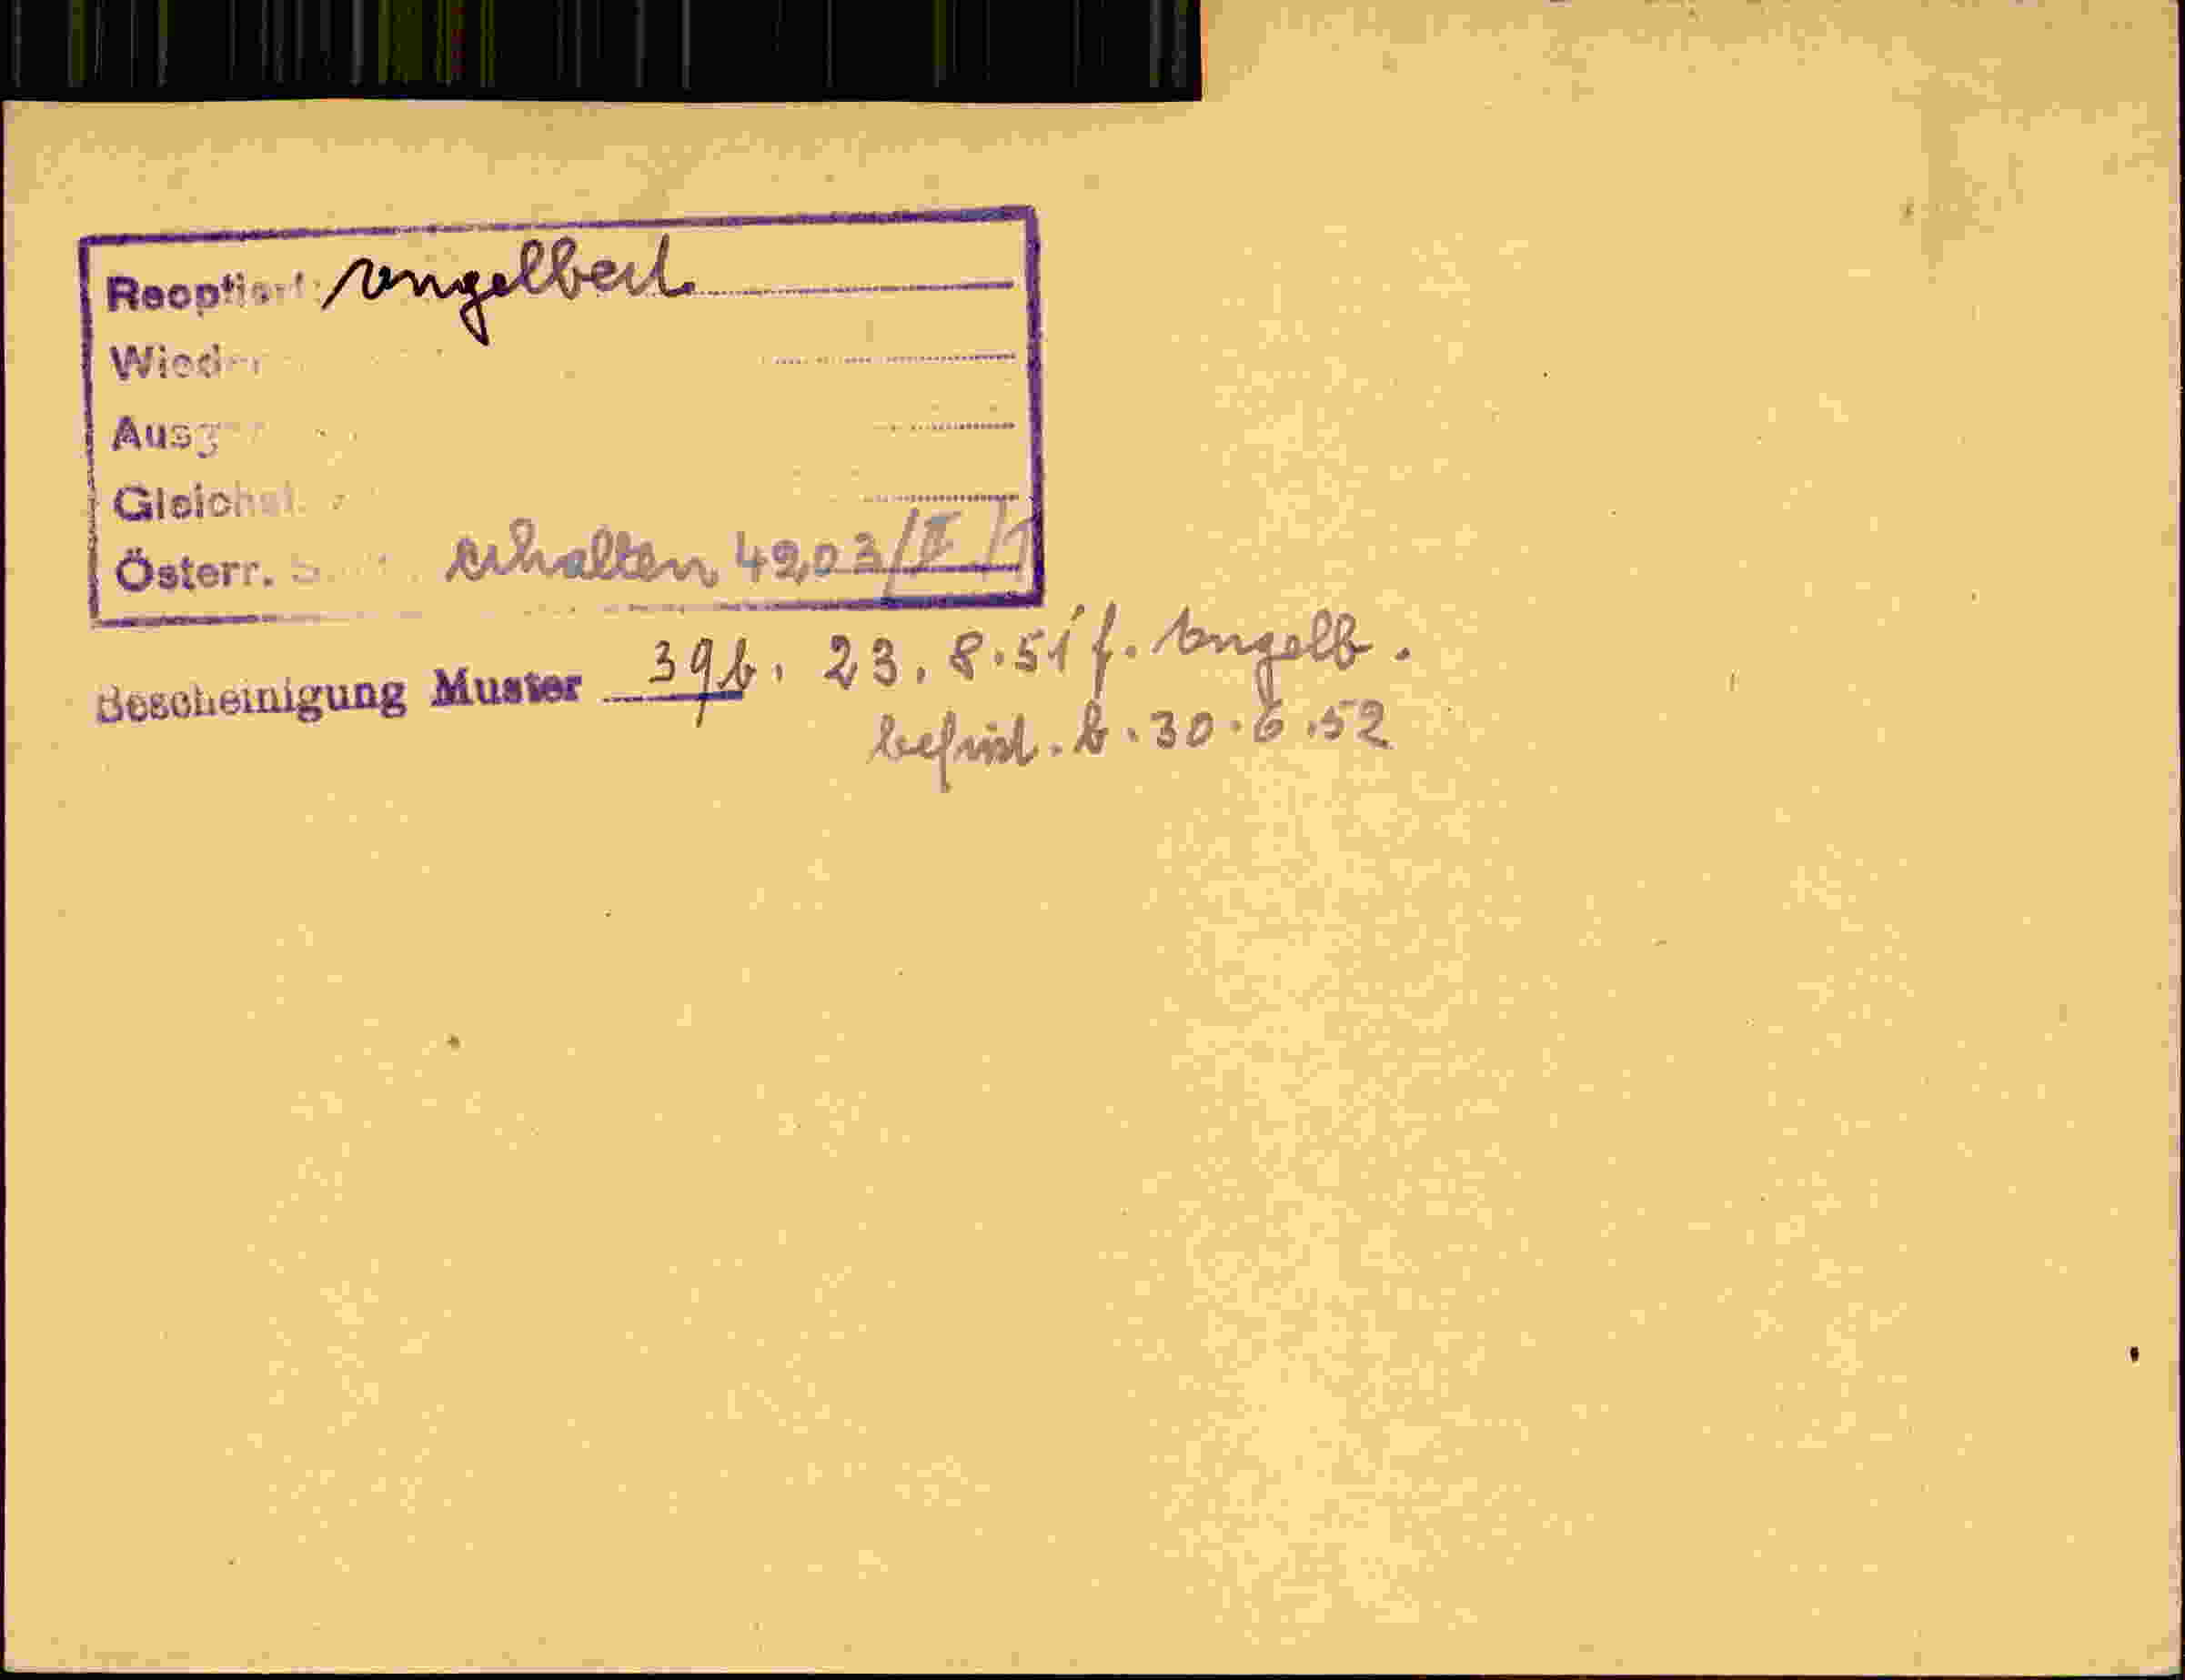 Reoptiert: Engelbert
Wieder
Ausg
Gleichst.
Österr. erhalten 4203/II/1
Bescheinigung Muster 39b. 23.8.51 f. Engelb.
befrist. b. 30.6.52